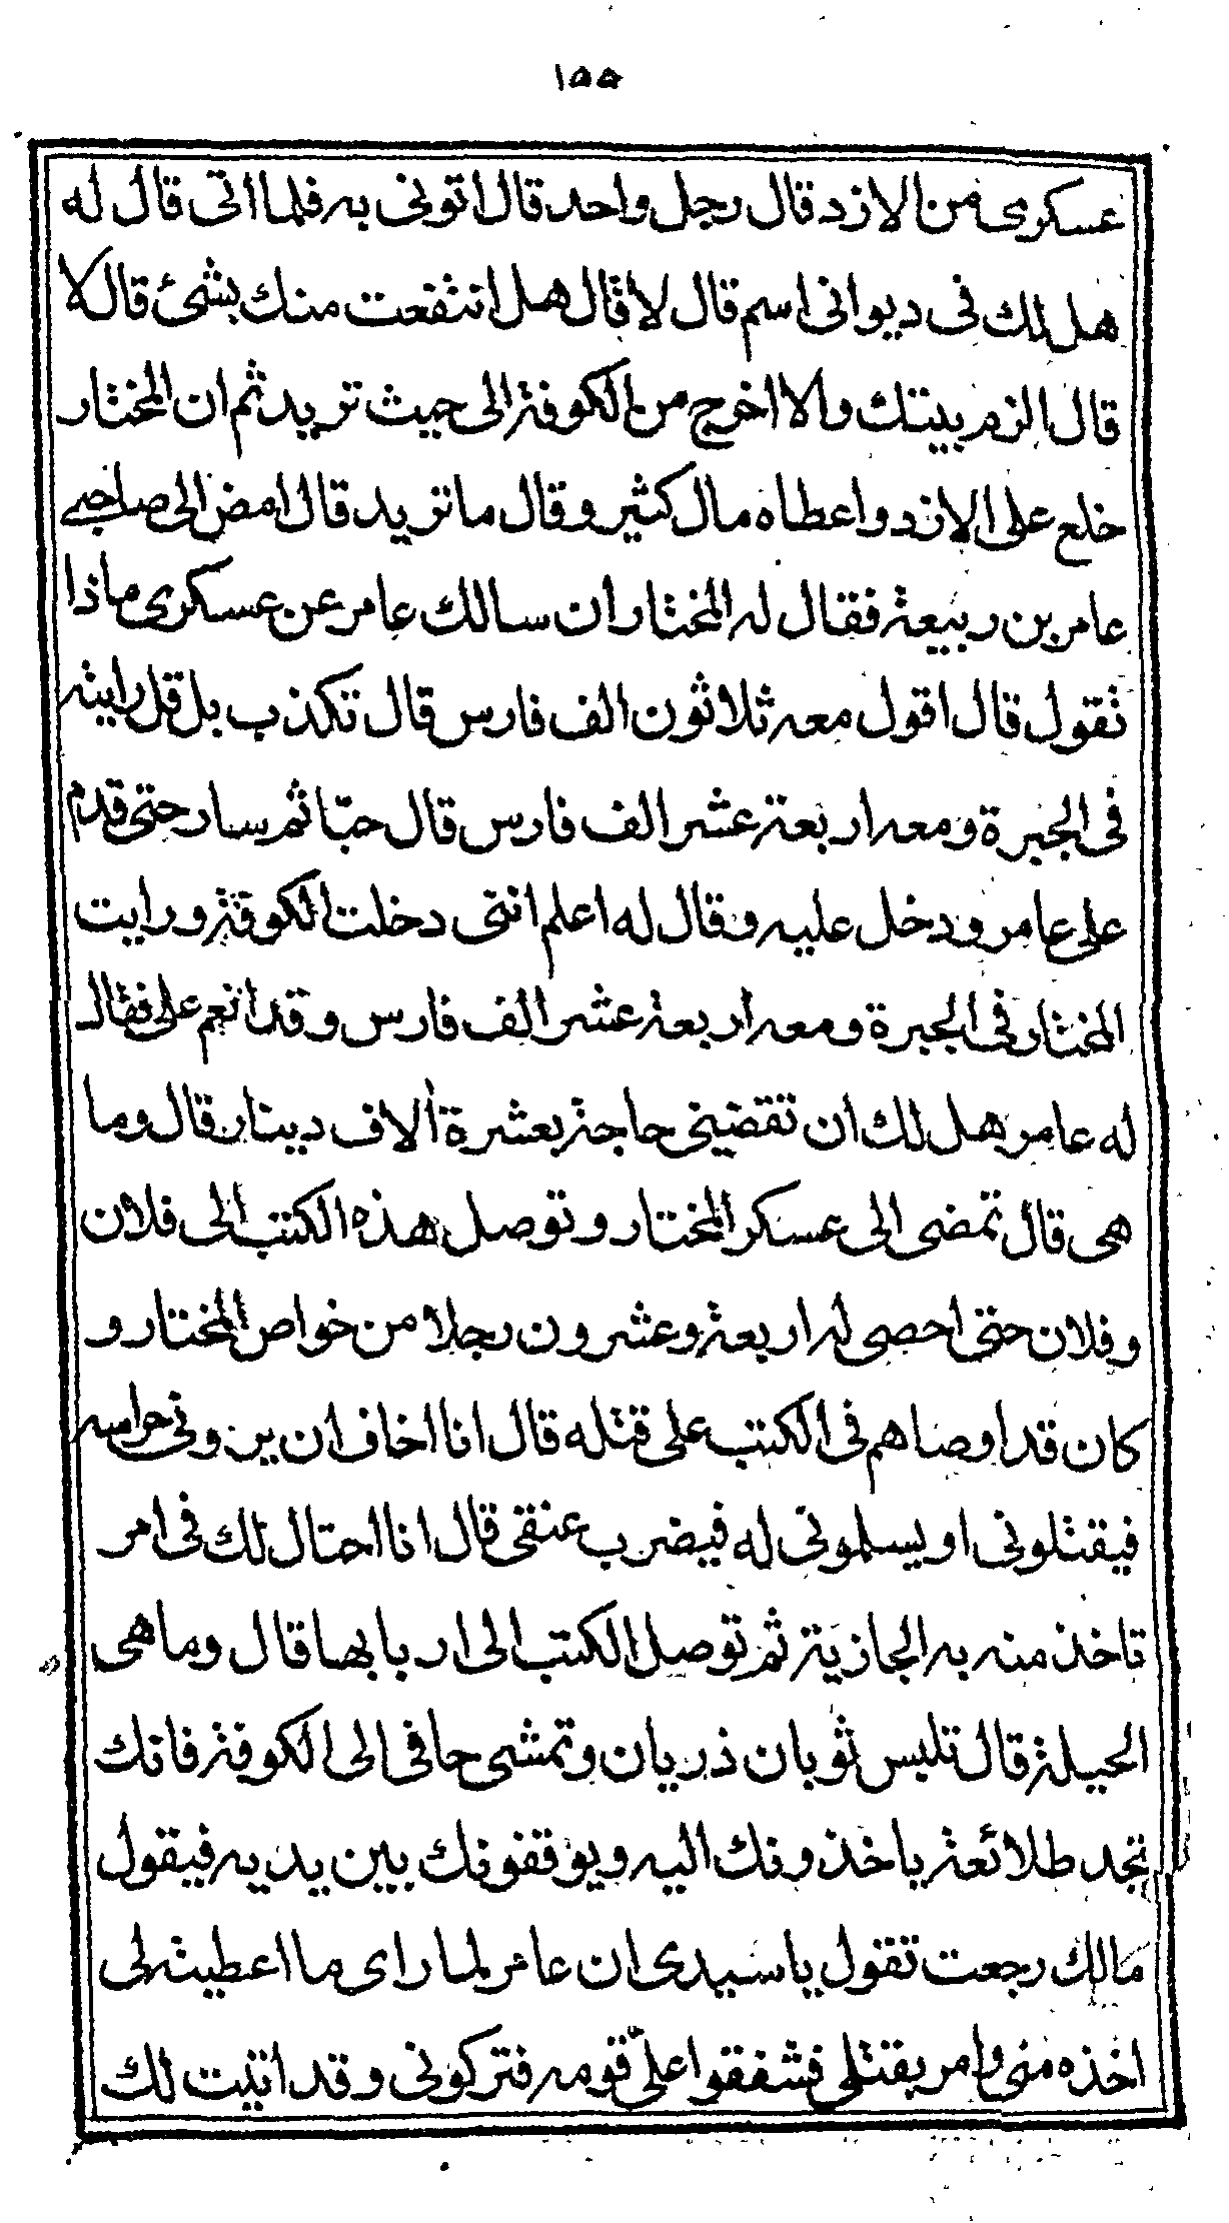 ١٥٥
عسكرى من الازد قال رجل واحد قال اتونى به فلما اتى قال له
هل لك فى ديوانى اسم قال لا قال هل انتفعت منك بشئ قال لا
قال الزم بيتك والا اخرج من الكوفة الى حيث تريد ثم ان المختار
خلع على الازد واعطاه مال كثير وقال ما تريد قال امض الى صاحبى
عامر بن ربيعة فقال له المختار ان سالك عامر عن عسكرى ماذا
تقول قال اقول معه ثلاثون الف فارس قال تكذب بل قل رايته
فى الجيرة ومعه اربعة عشر الف فارس قال حبّا ثم سار حتى قدم
على عامر ودخل عليه وقال له اعلم انتى دخلت الكوفة ورايت
المختار فى الجيرة ومعه اربعة عشر الف فارس وقد انعم على فقال
له عامر هل لك ان تقضينى حاجة بعشرة ألاف دينار قال وما
هى قال تمضى الى عسكر المختار وتوصل هذه الكتب الى فلان
وفلان حتى احصى له اربعة وعشرون رجلا من خواص المختار و
كان قد اوصاهم فى الكتب على قتله قال انا اخاف ان يرونى حراسه
فيقتلونى او يسلمونى له فيضرب عنقى قال انا احتال لك فى امر
تاخذ منه به الجازية ثم توصل الكتب الى اربابها قال وما هى
الحيلة قال تلبس ثوبان ذريان وتمشى حافى الى الكوفة فانك
تجد طلائعة ياخذونك اليه ويوقفونك بين يديه فيقول
مالك رجعت تقول يا سيدى ان عامر لما راى ما اعطيته لى
اخذه منى وامر بقتلى فشفقوا علىّ قومه فتركونى وقد اتيت لك